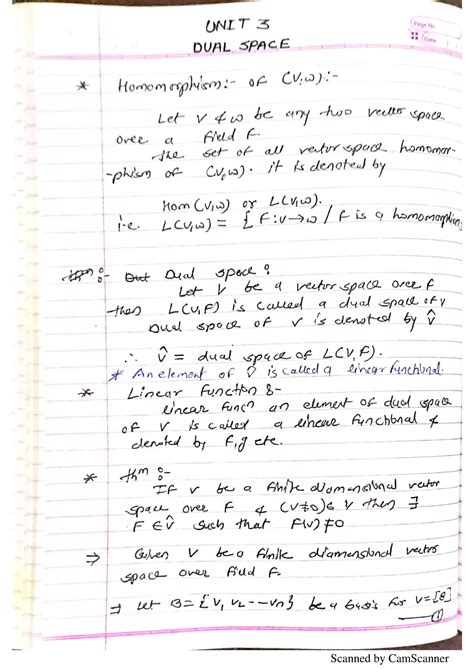 UNIT 3
Page No.
Date
DUAL SPACE
* Homomorphism:- of (V,W):-
Let V & W be any two vector space
over a field F.
the set of all vector space homomor-
-phism of (V,W). it is denoted by
Hom (V,W) or L(V,W).
i.e. L(V,W) = { F: V→W / F is a homomorphism
Dual space :
Let V be a vector space over F
then L(V,F) is called a dual space of V
Dual space of V is denoted by V̂
∴ V̂ = dual space of L(V,F).
* An element of V̂ is called a linear functional.
* Linear function :-
linear funcⁿ an element of dual space
of V is called a linear functional &
denoted by F, g etc.
* thm :-
If V be a finite diamensional vector
space over F & (V≠0)∈ V then ∃
F ∈ V̂ such that F(V)≠0
⇒ Given V be a finite diamensional vector
space over field F.
⇒ Let B = {V1 V2 --- Vn} be a basis for V=[B]
①
Scanned by CamScanner